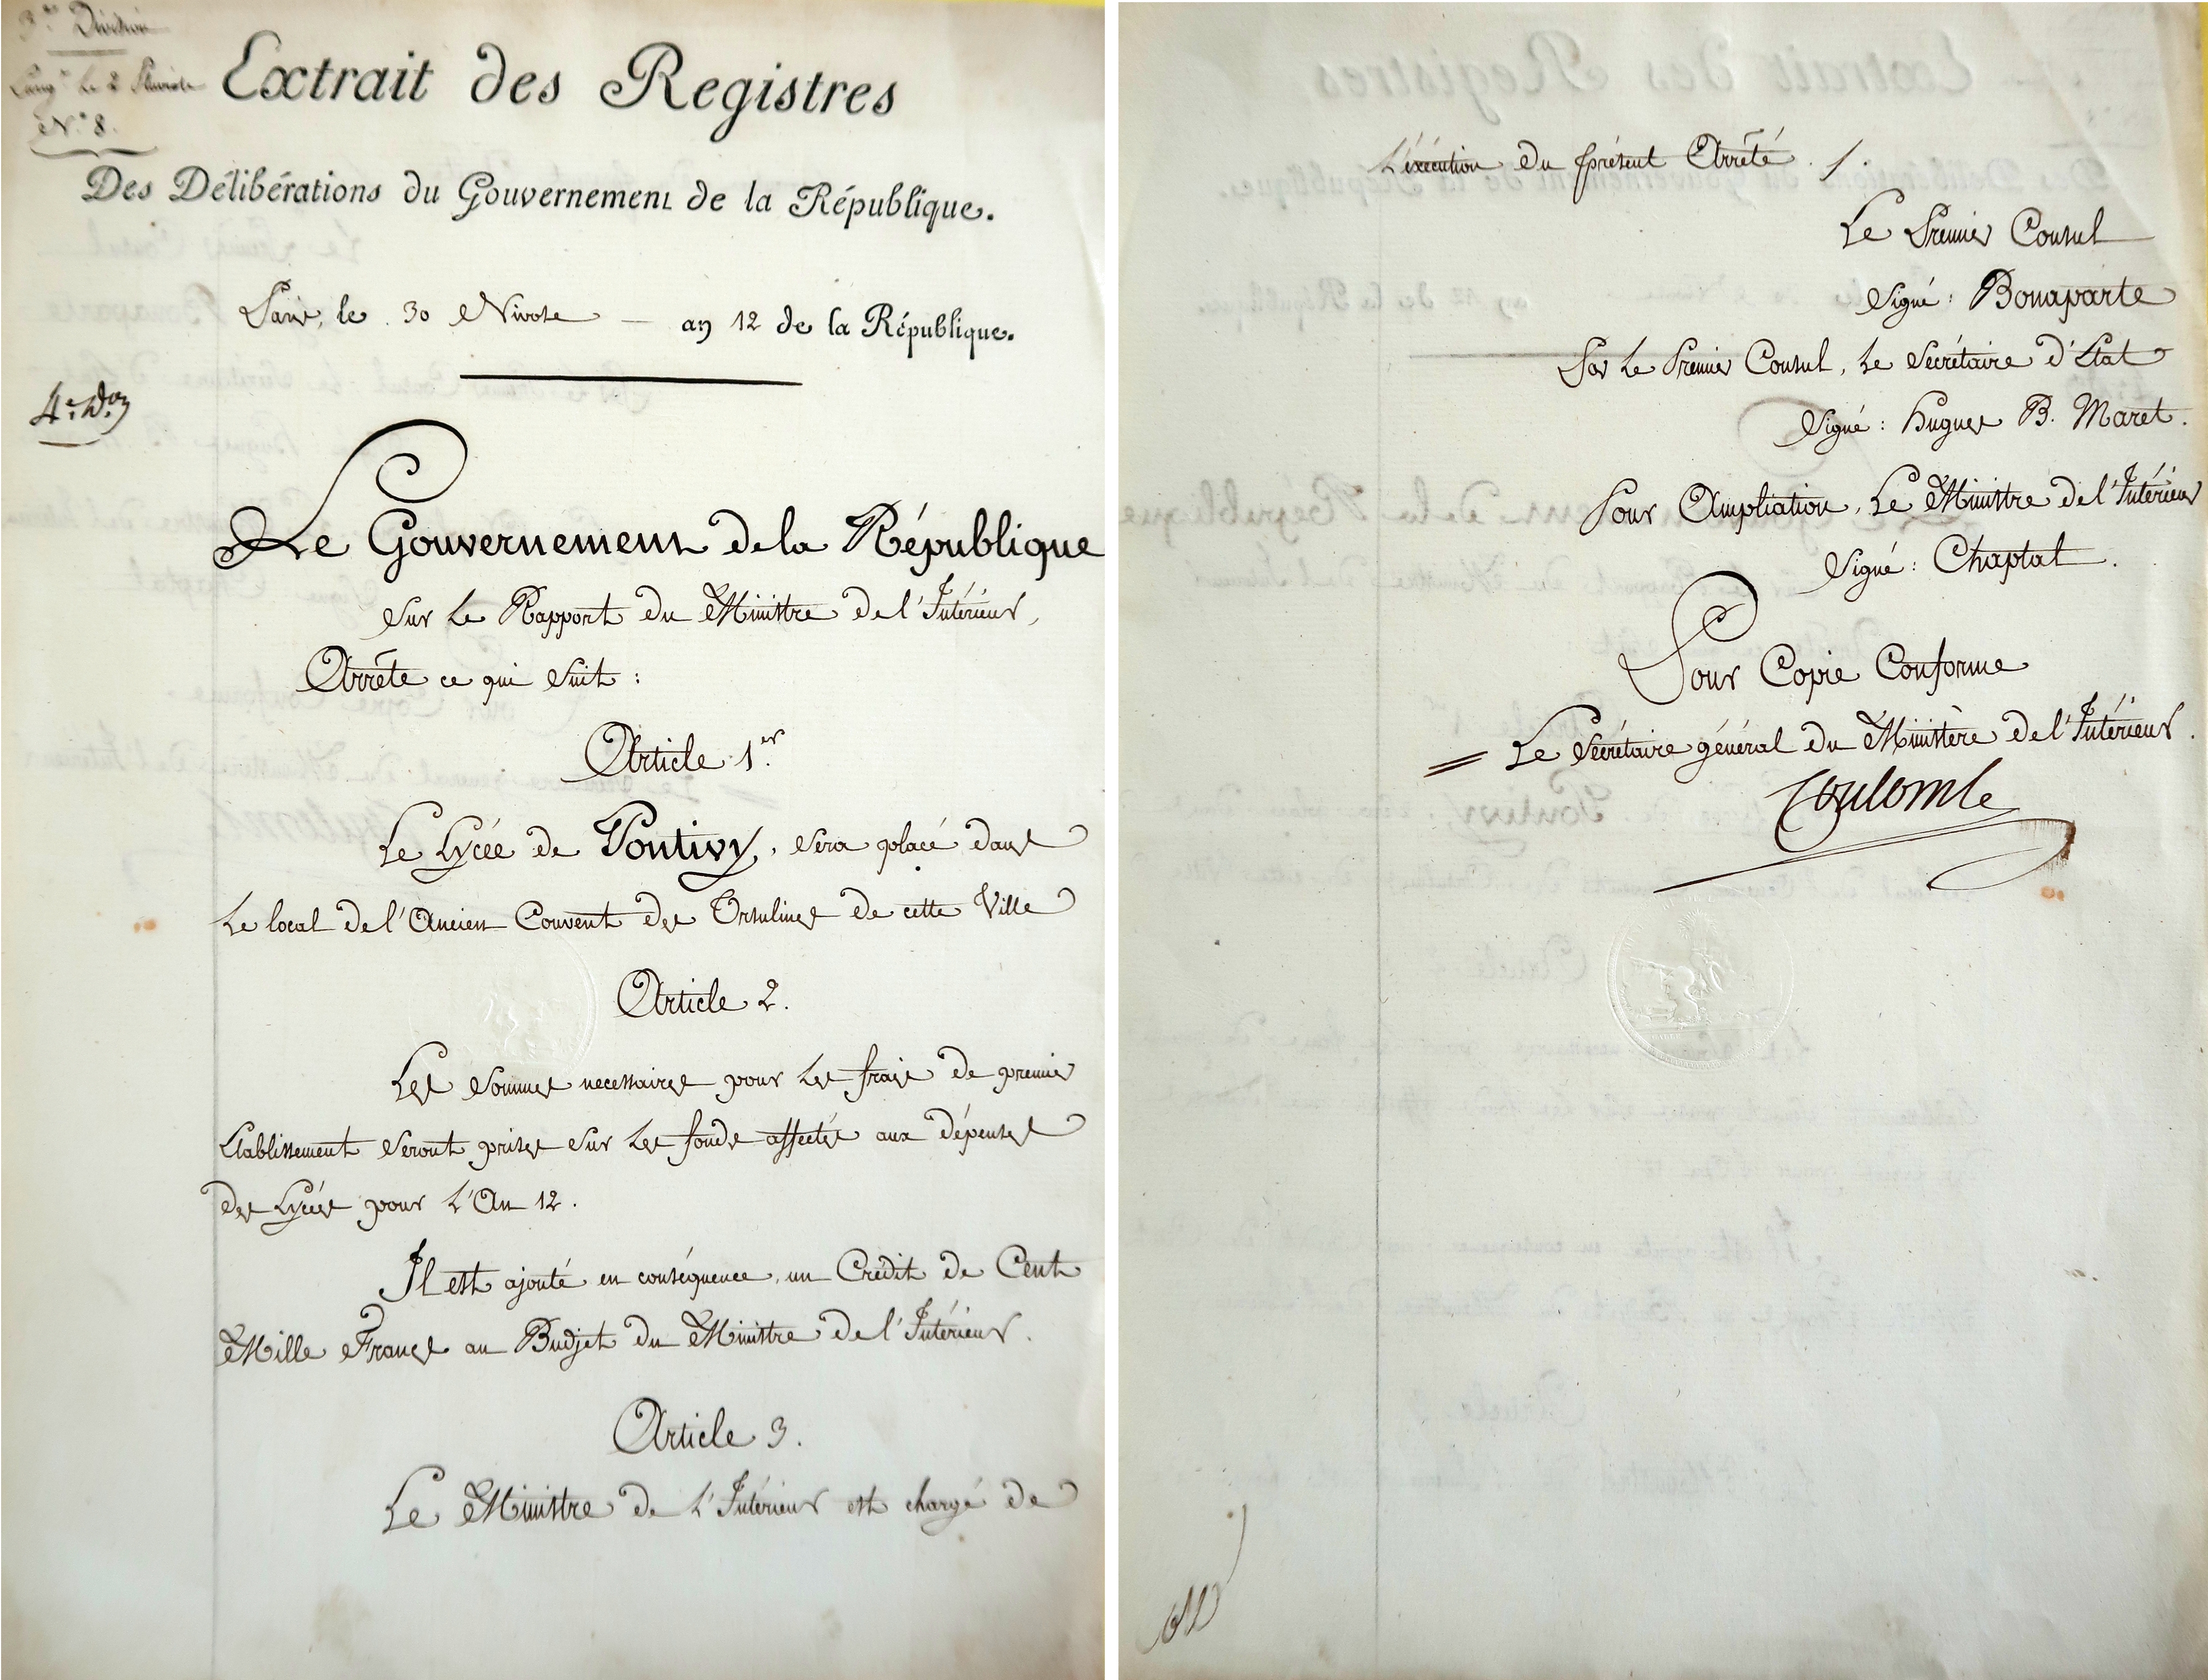 3.e Division
le 2 Pluviose
N.° 8.
Extrait des Registres
Des Délibérations du Gouvernement de la République.
Paris, le 30 Nivose — an 12 de la République.
4.e d.on
Le Gouvernement de la République
Sur le Rapport du Ministre de l'Intérieur,
Arrête ce qui Suit :
Article 1.er
Le Lycée de Pontivy, sera placé dans
Le local de l'Ancien Couvent des Orsulines de cette Ville
Article 2.
Les Sommes necessaires pour les frais de premier
Etablissement Seront prises sur les fonds affectés aux dépenses
des Lycées pour l'An 12.
Il est ajouté en conséquence, un Crédit de Cent
Mille Francs au Budjet du Ministre de l'Intérieur.
Article 3.
Le Ministre de l'Intérieur est chargé de
L'éxécution du présent Arrêté ./.
Le Premier Consul
Signé : Bonaparte
Par le Premier Consul, le Secrétaire d'Etat
Signé : Hugues B. Maret.
Pour Ampliation, Le Ministre de l'Intérieur
Signé : Chaptal.
Pour Copie Conforme
= Le Secrétaire général du Ministère de l'Intérieur.
Coulomb